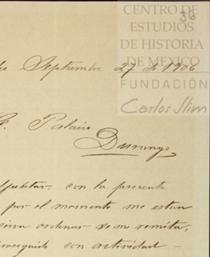 CENTRO DE
ESTUDIOS
DE HISTORIA
DE MEXICO
FUNDACIÓN
Carlos Slim
36
Septiembre 27 de 1906
Palacio
Durango
con la presente
por el momento me estan
ordenar se me remita,
con actividad